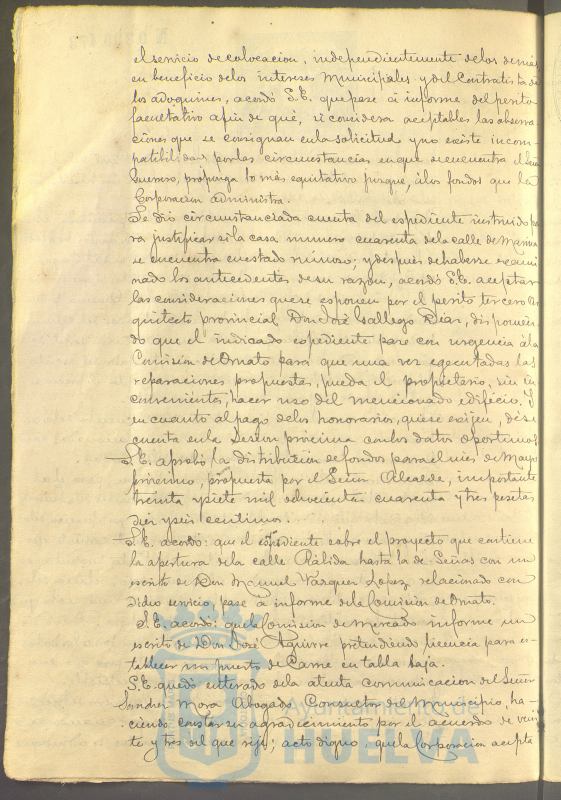 el servicio de colocacion, independientemente de los demás
en beneficio de los intereses Municipales y del Contratista de
los adoquines, acordó S.E. que pase á informe del perito
facultativo a fin de que, si considera aceptables las observa-
ciones que se consignan en la solicitud y no existe incom-
patibilidad por las circunstancias en que se encuentra el
Guerrero, proponga lo más equitativo porque, á los fondos que la
Corporacion administra.
Se dió circunstanciada cuenta del espediente instruido pa
ra justificar si la casa numero cuarenta de la calle de
se encuentra en estado ruinoso; y despues de haberse exami
nado los antecedentes de su razon, acordó S.E. aceptar
las consideraciones que se esponen por el perito tercero Ar
quitecto provincial Don José Gallego Diaz, disponien
do que el indicado espediente pase con urgencia á la
Comision de Ornato para que una vez egecutadas las
reparaciones propuestas, pueda el propietario, sin in
convenientes, hacer uso del mencionado edificio. Y
en cuanto al pago de los honorarios, que se exijen, dése
cuenta en la Sesion próxima con los datos oportunos
S.E. aprobó la distribucion de fondos para el mes de Mayo
próximo, propuesta por el Señor Alcalde, importante
treinta y siete mil doscientas cuarenta y tres pesetas
diez y seis centimos.
S.E. acordó: que el espediente sobre el proyecto que contiene
la apertura de la calle Rábida hasta la de Señas con un
escrito de Don Manuel Vazquez Lopez relacionado con
dicho servicio, pase á informe de la Comision de Ornato.
S.E. acordó: que la Comision de Mercado informe un
escrito de Don José Aguirre pretendiendo licencia para es-
tablecer un puesto de Carne en tabla baja.
S.E. quedó enterado de la atenta comunicacion del Señor
Sanchez Mora Abogado Consultor del Municipio, ha-
ciendo constar su agradecimiento por el acuerdo de vein
te y tres del que rije; acto digno, que la Corporacion acepta
Ayuntamiento de
HUELVA